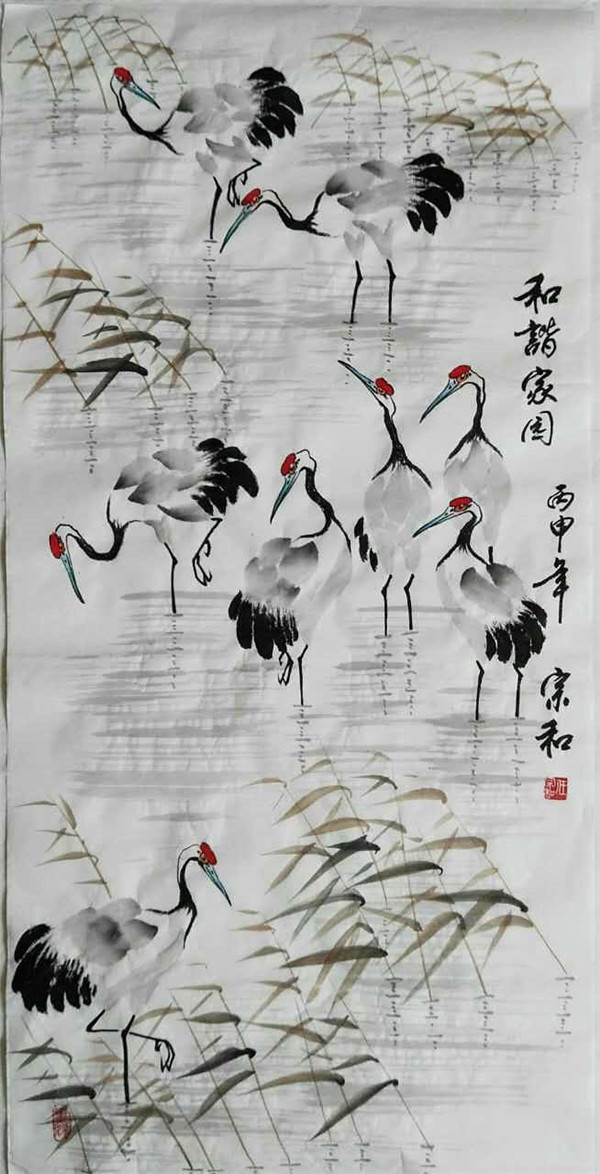 和諧家园 丙申年 宗和